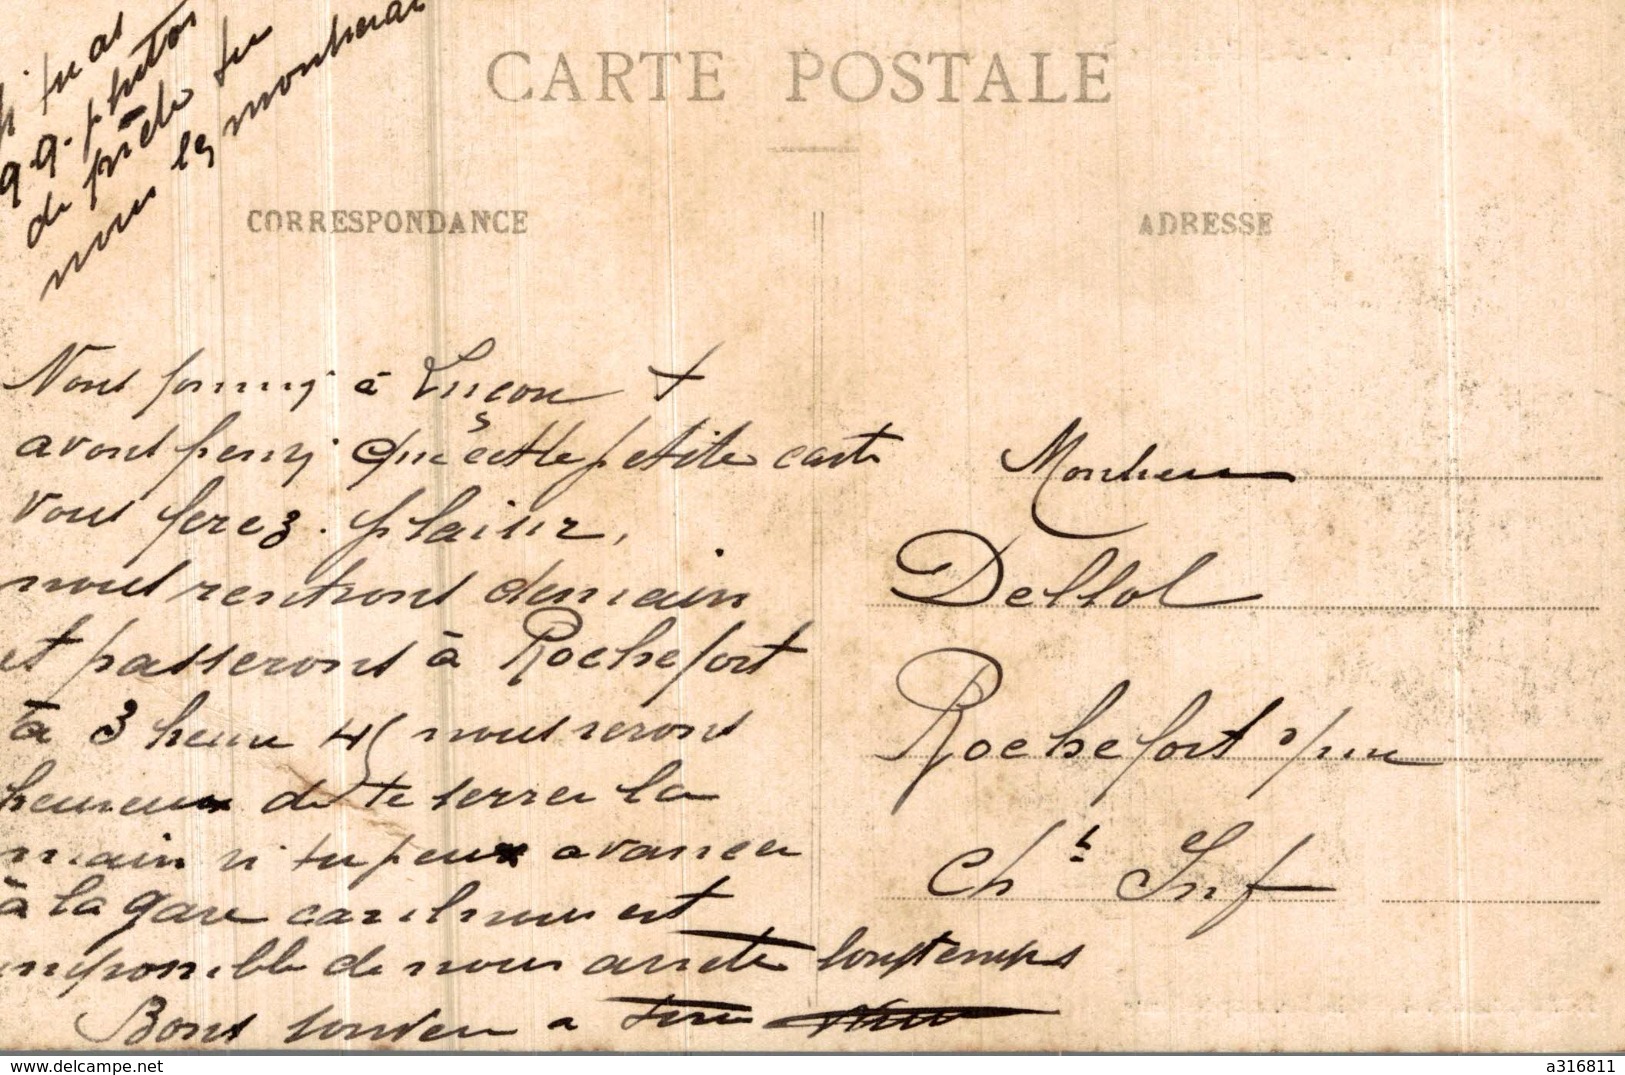 si tu as
q.q. photos
de prête tu
nous les montreras
CARTE POSTALE
CORRESPONDANCE
ADRESSE
Nous sommes à Luçon +
avons pensez que cette petite carte
vous ferez plaisir,
nous rentrons demain
et passerons à Rochefort
à 3 heure 45 nous serons
heureux de te serrer la
main si tu peux avancer
à la gare car il nous est
impossible de nous arrêter longtemps
Bons souvenir a tous
Monsieur
Dellol
Rochefort s/mer
Chte Inf
a316811